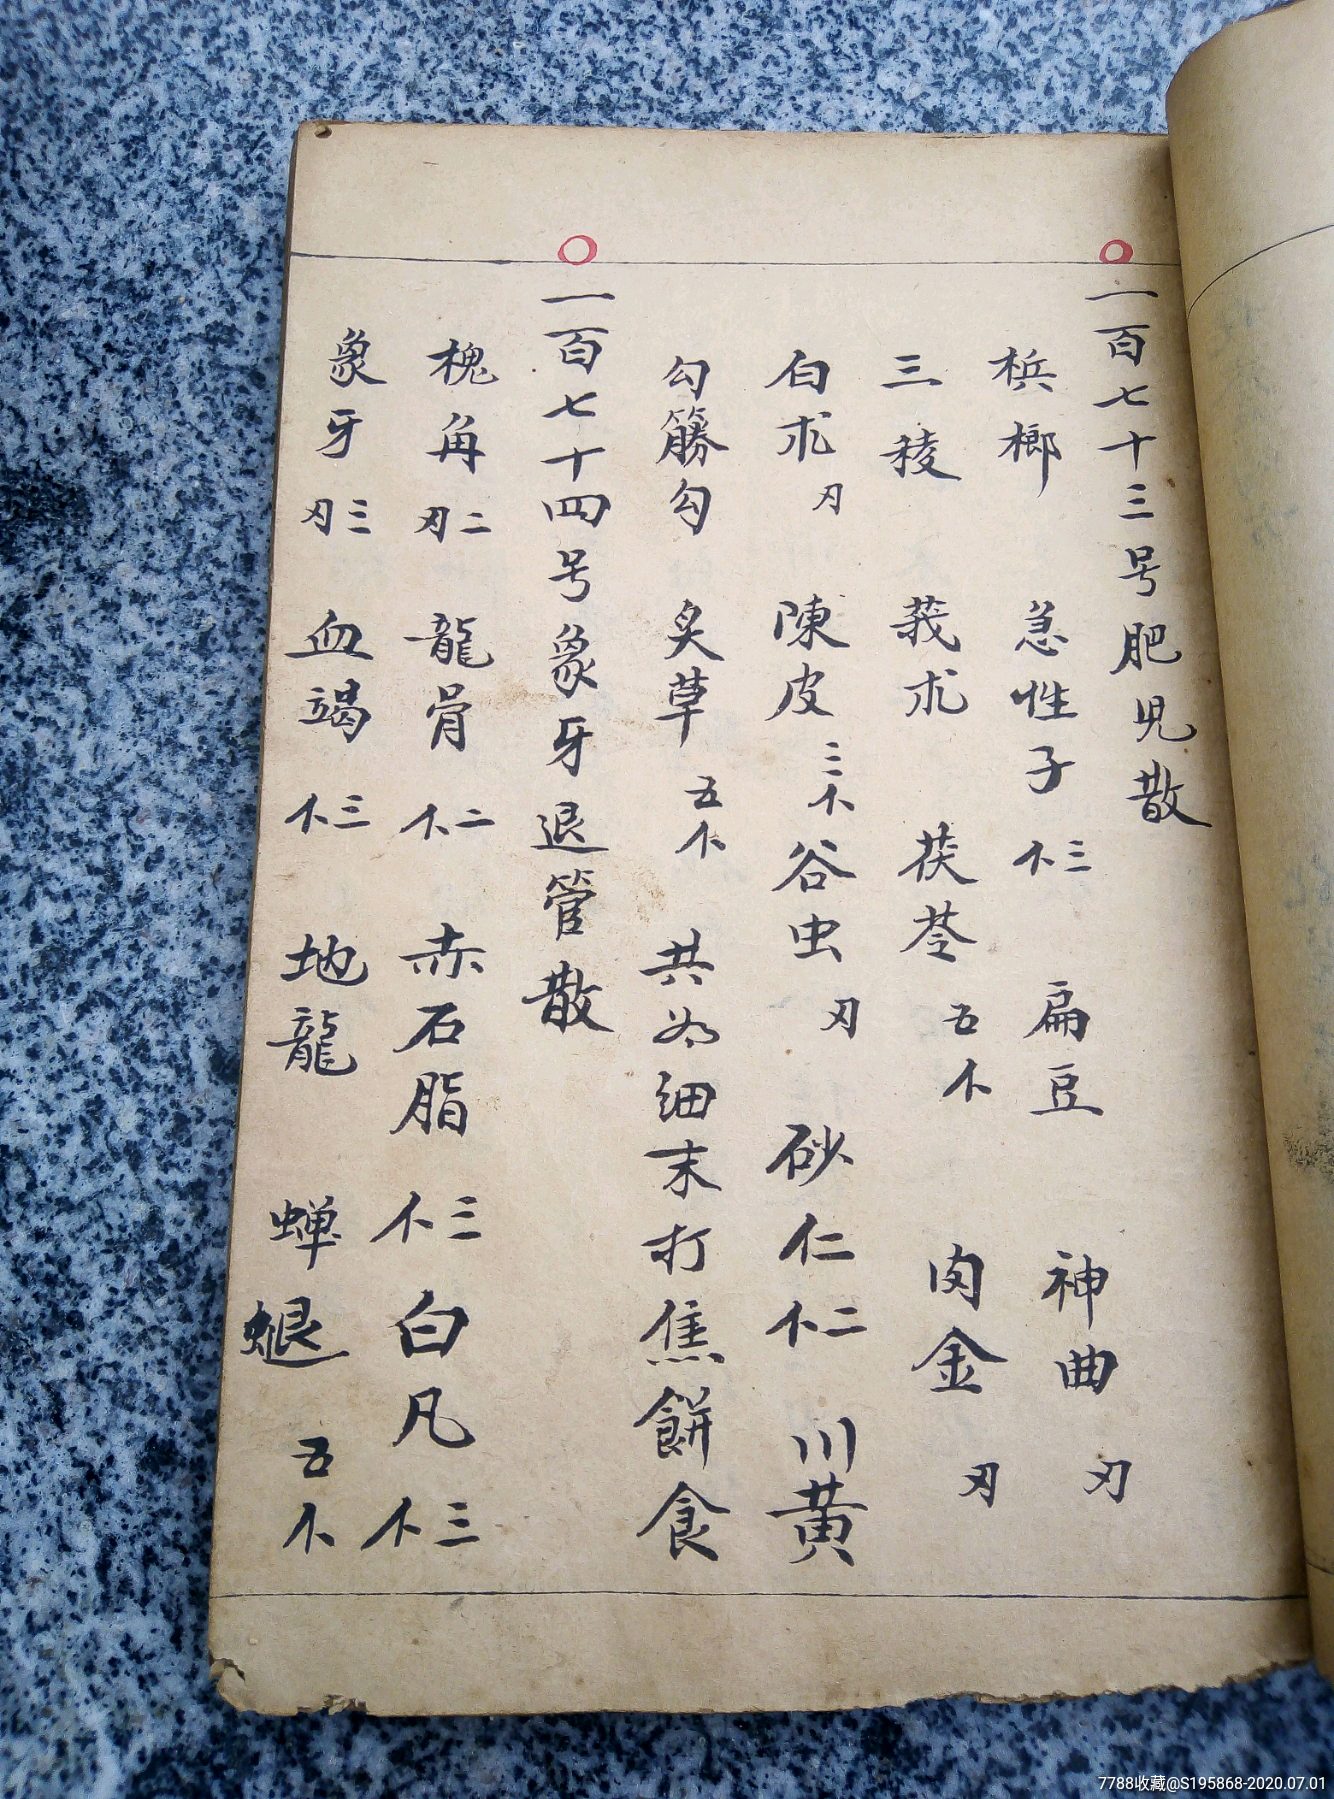 一百七十三号肥児散
梹榔 急性子三个 扁豆 神曲刄
三稜 莪朮 茯苓五个 肉金刄
白朮刄 陳皮三个 谷虫刄 砂仁二个 川黄
勾籐勾 炙草五个 共为细末打焦餅食
一百七十四号象牙退管散
槐角二刄 龍骨二个 赤石脂三个 白凡三个
象牙三刄 血竭三个 地龍 蝉蜕五个
7788收藏@S195868-2020.07.01